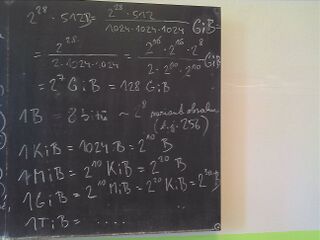 2²⁸ · 512B = 2²⁸ · 512 / 1024 · 1024 · 1024 GiB =
= 2²⁸ / 2 · 1024 · 1024 = 2¹⁰ · 2¹⁰ · 2⁸ / 2 · 2¹⁰ · 2¹⁰ GiB
= 2⁷ GiB = 128 GiB
1B = 8 bitů ~ 2⁸
(t.j. 256)
1 KiB = 1024 B = 2¹⁰ B
1 MiB = 2¹⁰ KiB = 2²⁰ B
1 GiB = 2¹⁰ MiB = 2²⁰ KiB = 2³⁰ B
1 TiB = ....